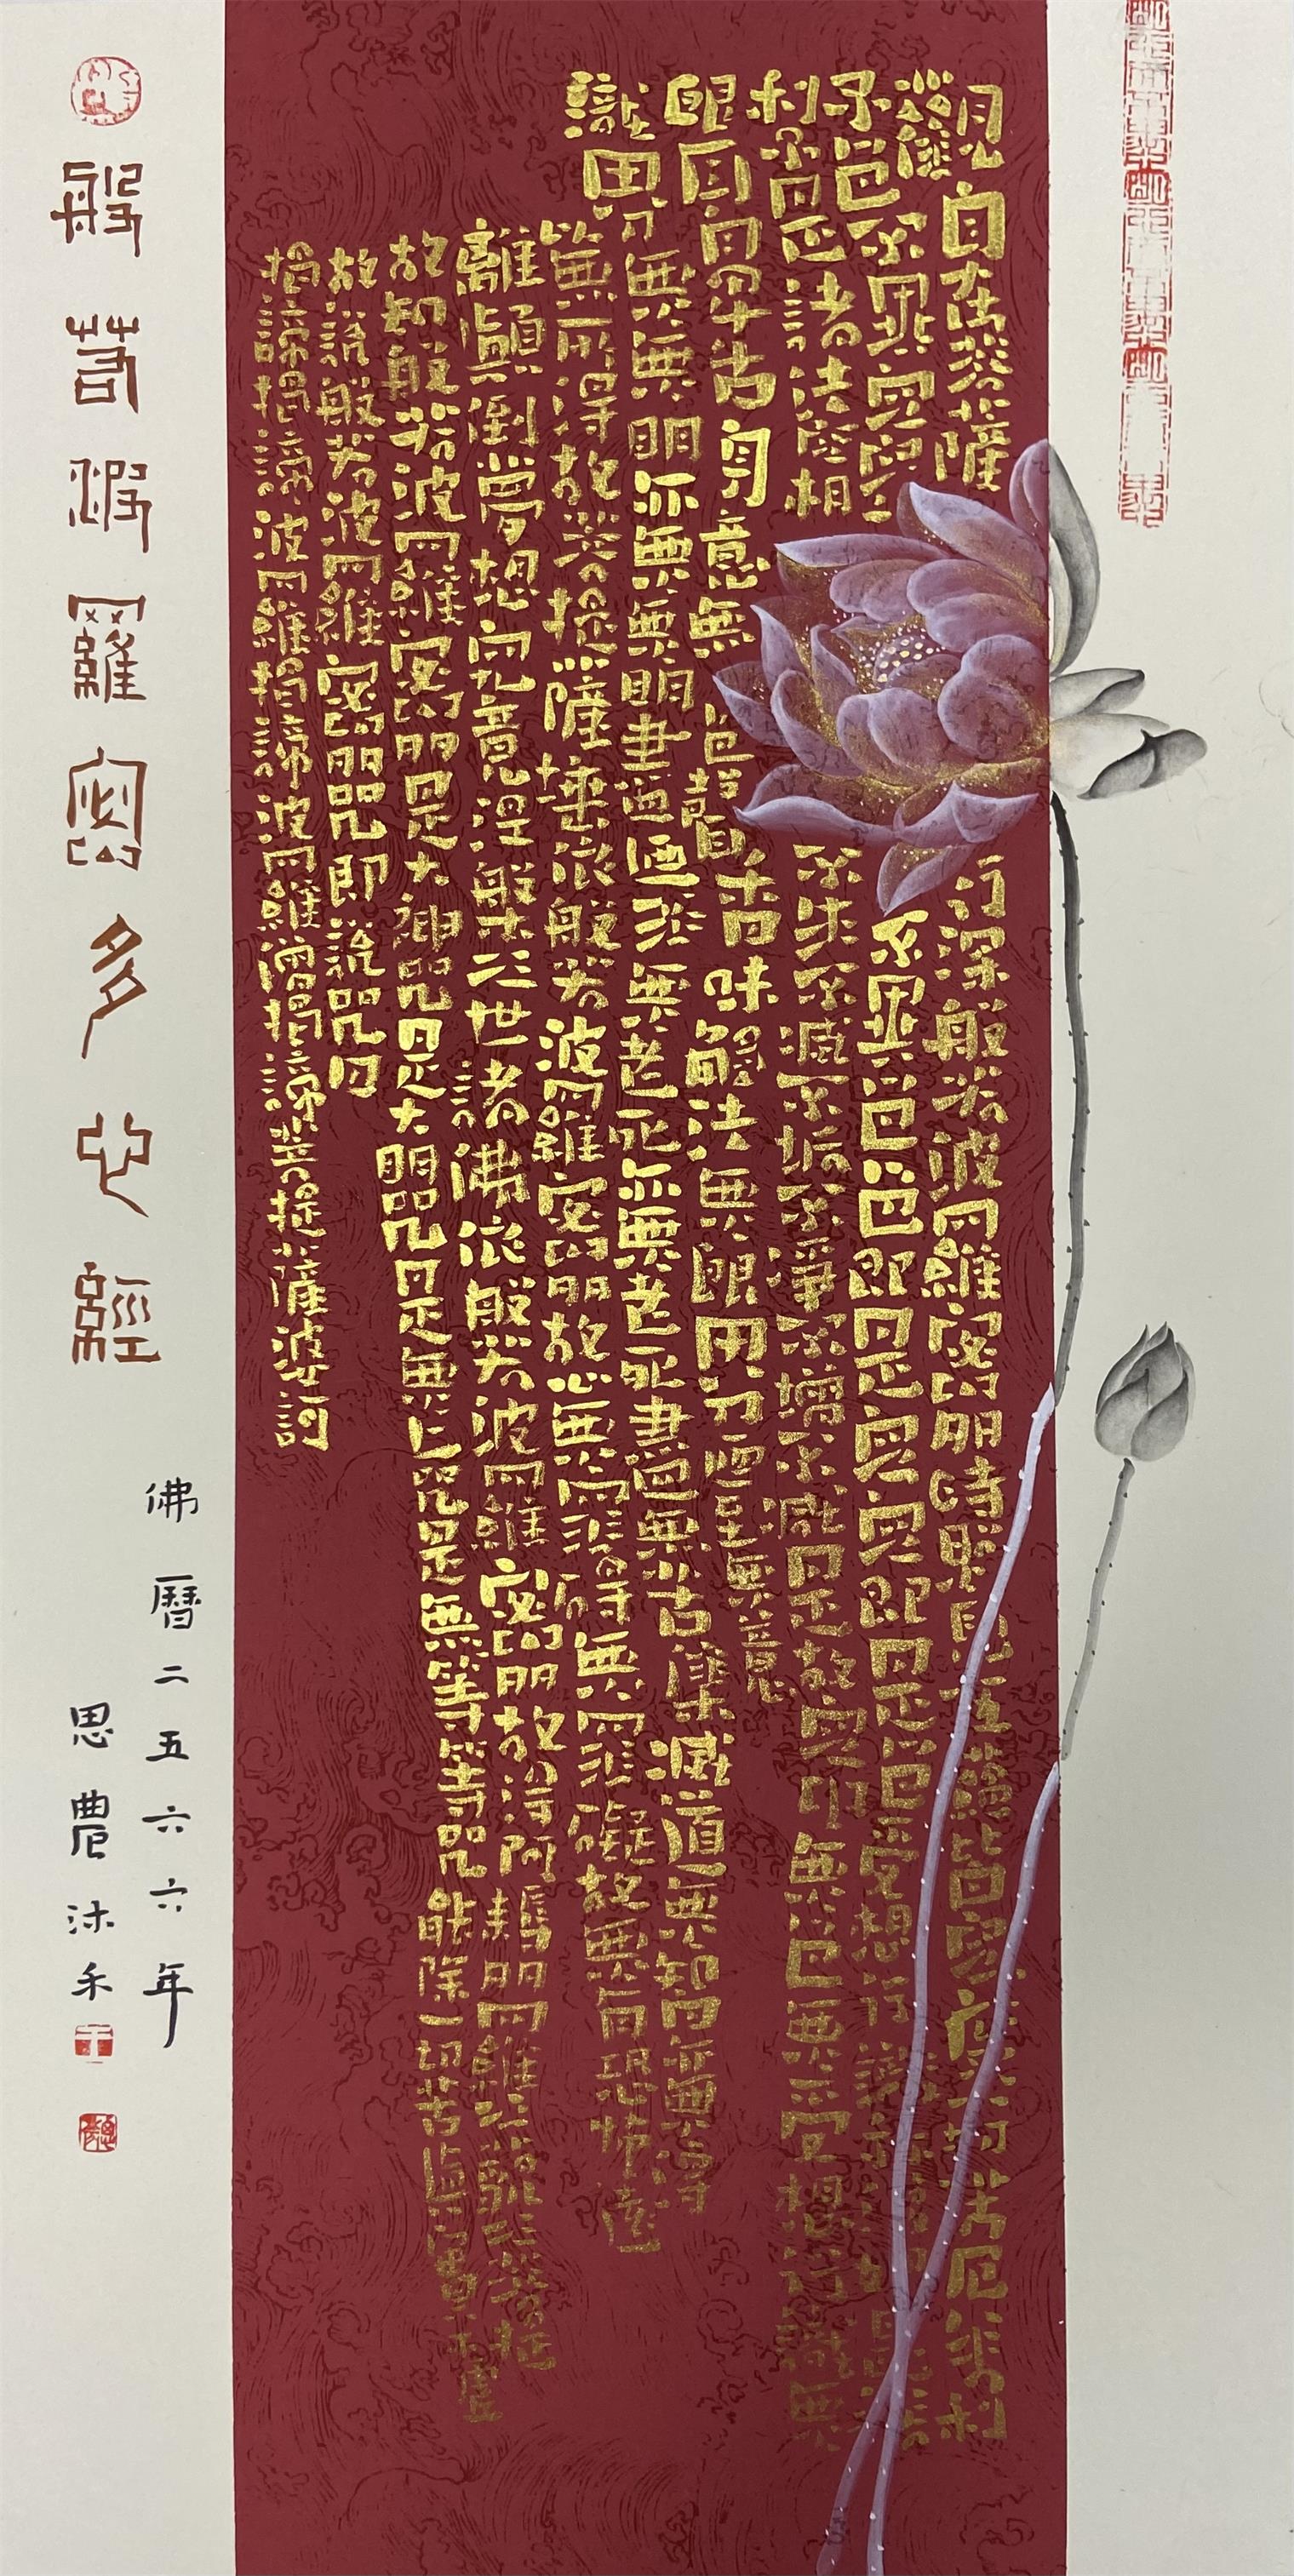 觀自在菩薩行深般若波羅蜜多時照見五蘊皆空度一切苦厄舍利
子色不異空空不異色色即是空空即是色受想行識亦復如是舍
利子是諸法空相不生不滅不垢不淨不增不減是故空中無色無受想行識無
眼耳鼻舌身意無色聲香味觸法無眼界乃至無意
識界乃無無明亦無無明盡乃至無老死亦無老死盡無苦集滅道無智亦無得
以無所得故菩提薩埵依般若波羅蜜多故心無罣礙無罣礙故無有恐怖遠
離顛倒夢想究竟涅槃三世諸佛依般若波羅蜜多故得阿耨多羅三藐三菩提
故知般若波羅蜜多是大神咒是大明咒是無上咒是無等等咒能除一切苦真實不虛
故說般若波羅蜜多咒即說咒曰
揭諦揭諦波羅揭諦波羅僧揭諦菩提薩婆訶
般若波羅蜜多心經
佛曆二五六六年
思農沐手